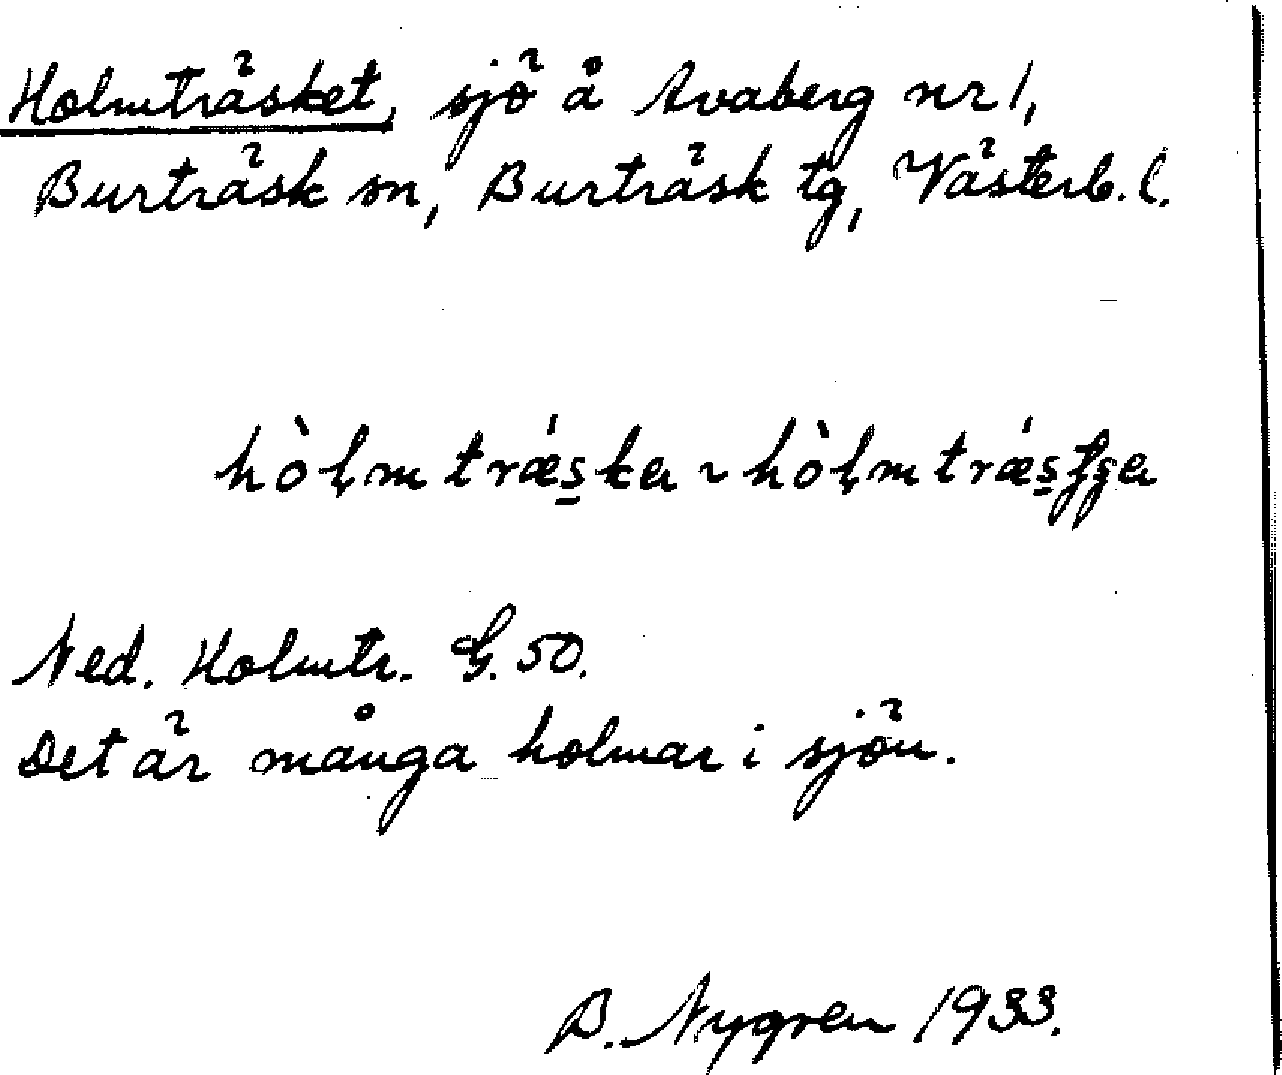 Holmträsket, sjö å Avaberg nr 1,
Burträsk sn, Burträsk tg, Västerb. l.
Ned. Holmtr. G. 50.
Det är många holmar i sjön.
B. Nygren 1933.